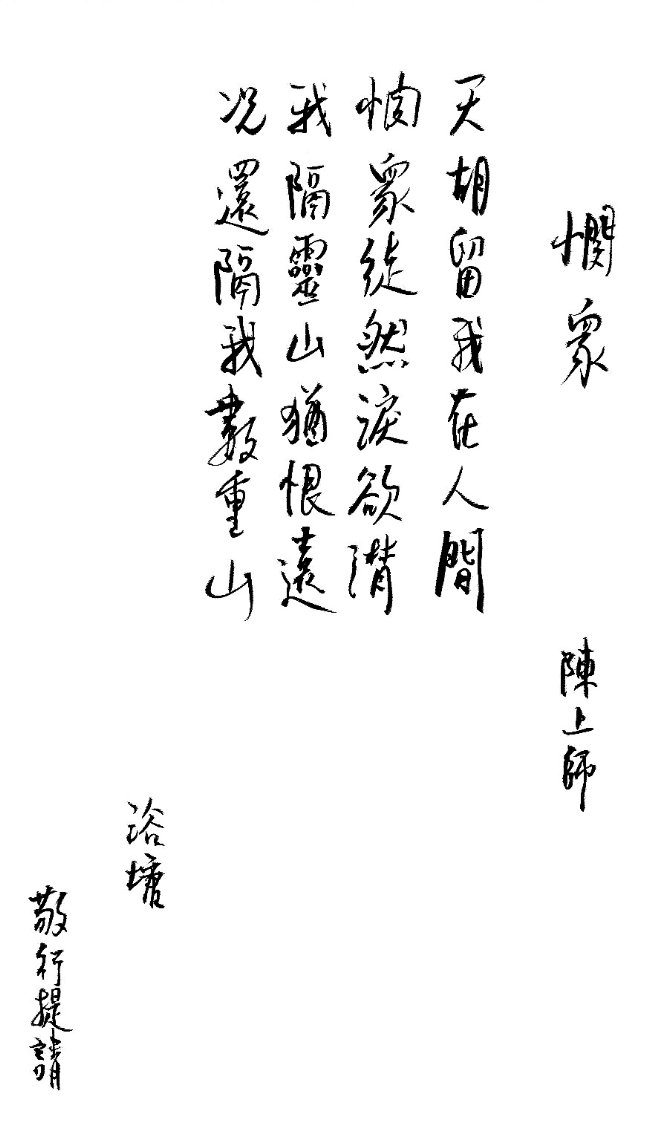 憫眾
陳上師
天胡留我在人間
憫眾徒然淚欲潸
我隔靈山猶恨遠
况還隔我數重山
浴塘
敬行提請